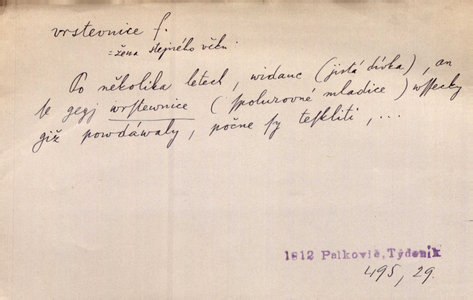 vrstevnice f.
= žena stejného věku.
Po několika letech, widauc (jistá dívka), an
se gegj wrstewnice (spolurovné mladice) wssecky
giž powdáwaly, počne sy teskliti, ...
1812 Palkovič, Týdeník
495, 29.